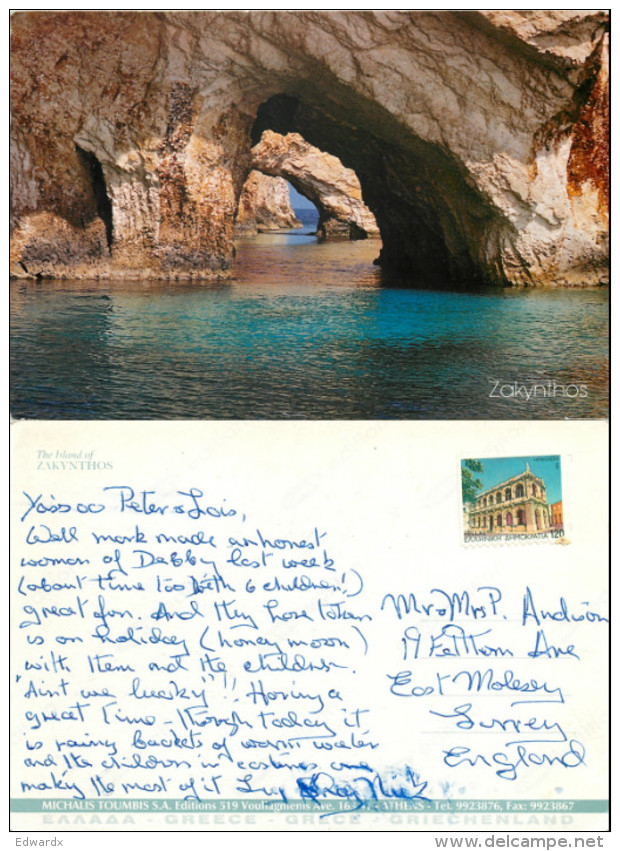 Zakynthos
The Island of
ZAKYNTHOS
Yassoo Peter & Lois,
Well mark made an honest
woman of Debby last week
(about time too with 6 children!)
great fun. And they have taken
us on holiday (honey moon)
with them and the children.
"Aint we lucky"!! Having a
great time - though today it
is raining buckets of warm water
and the children in costumes are
making the most of it
ΕΛΛΗΝΙΚΗ ΔΗΜΟΚΡΑΤΙΑ 120
Mr & Mrs P. Andison
19 Feltham Ave
East Molesey
Surrey
England
MICHALIS TOUMBIS S.A. Editions 519 Vouliagmenis Ave. 163 - ATHENS - Tel. 9923876, Fax: 9923867
ΕΛΛΑΔΑ - GREECE - GRECE - GRIECHENLAND
Edwardx
www.delcampe.net